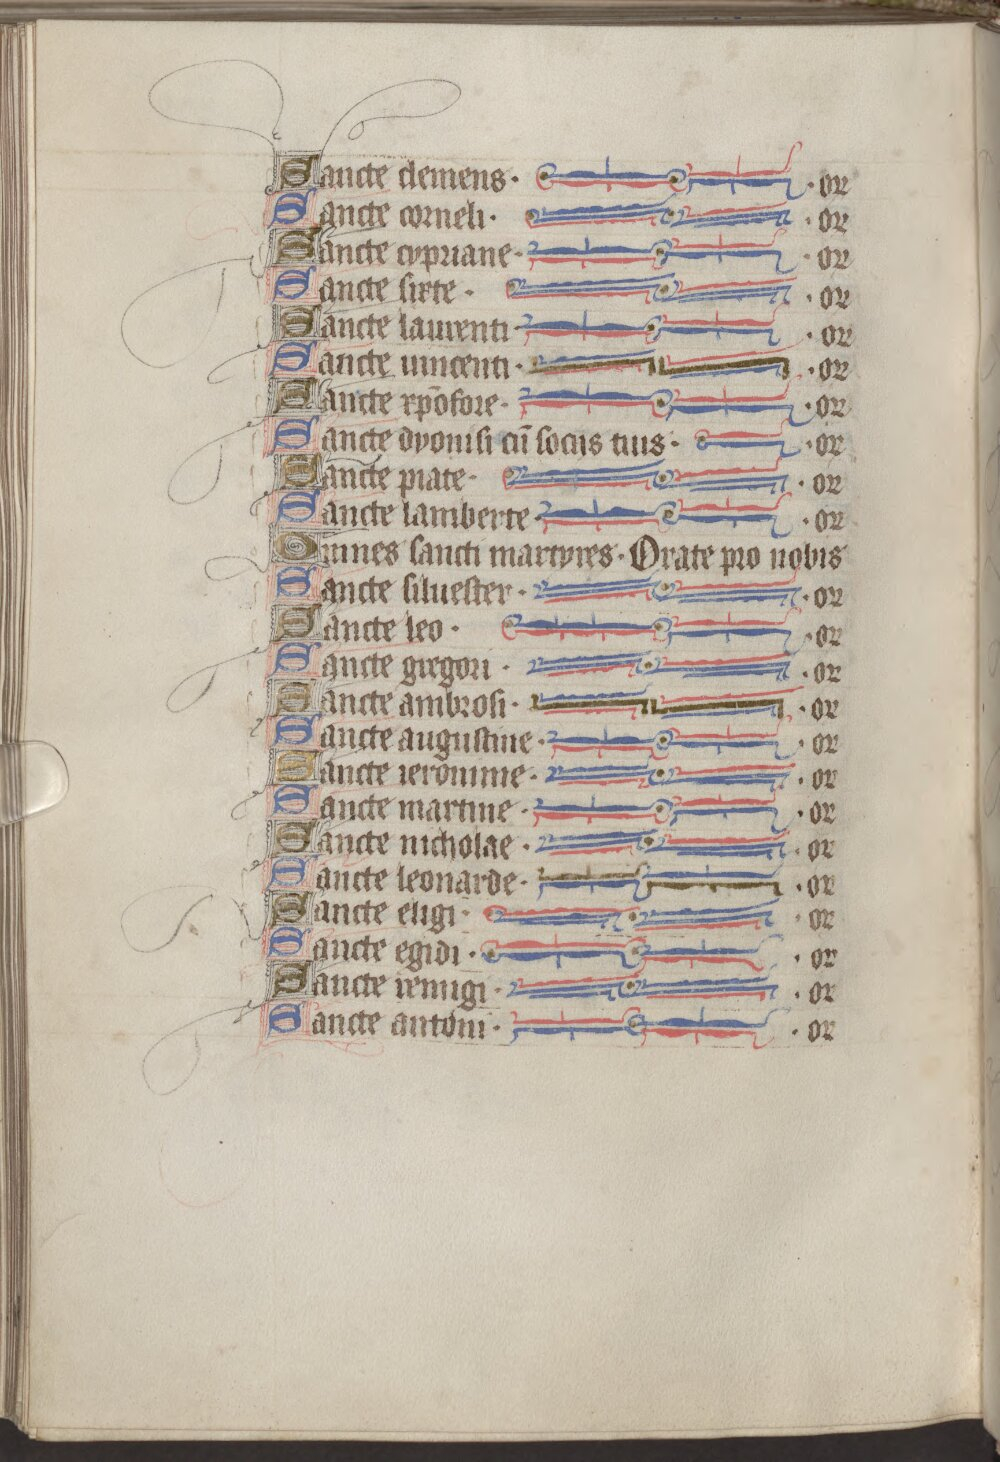 Sancte clemens · or
Sancte corneli · or
Sancte cypriane · or
Sancte sixte · or
Sancte laurenti · or
Sancte uincenti · or
Sancte xp̄ofore · or
Sancte dyonisi cū sociis tuis · or
Sancte piate · or
Sancte lamberte · or
Omnes sancti martyres · Orate pro nobis
Sancte siluester · or
Sancte leo · or
Sancte gregori · or
Sancte ambrosi · or
Sancte augustine · or
Sancte ieronime · or
Sancte martine · or
Sancte nicholae · or
Sancte leonarde · or
Sancte eligi · or
Sancte egidi · or
Sancte remigi · or
Sancte antoni · or